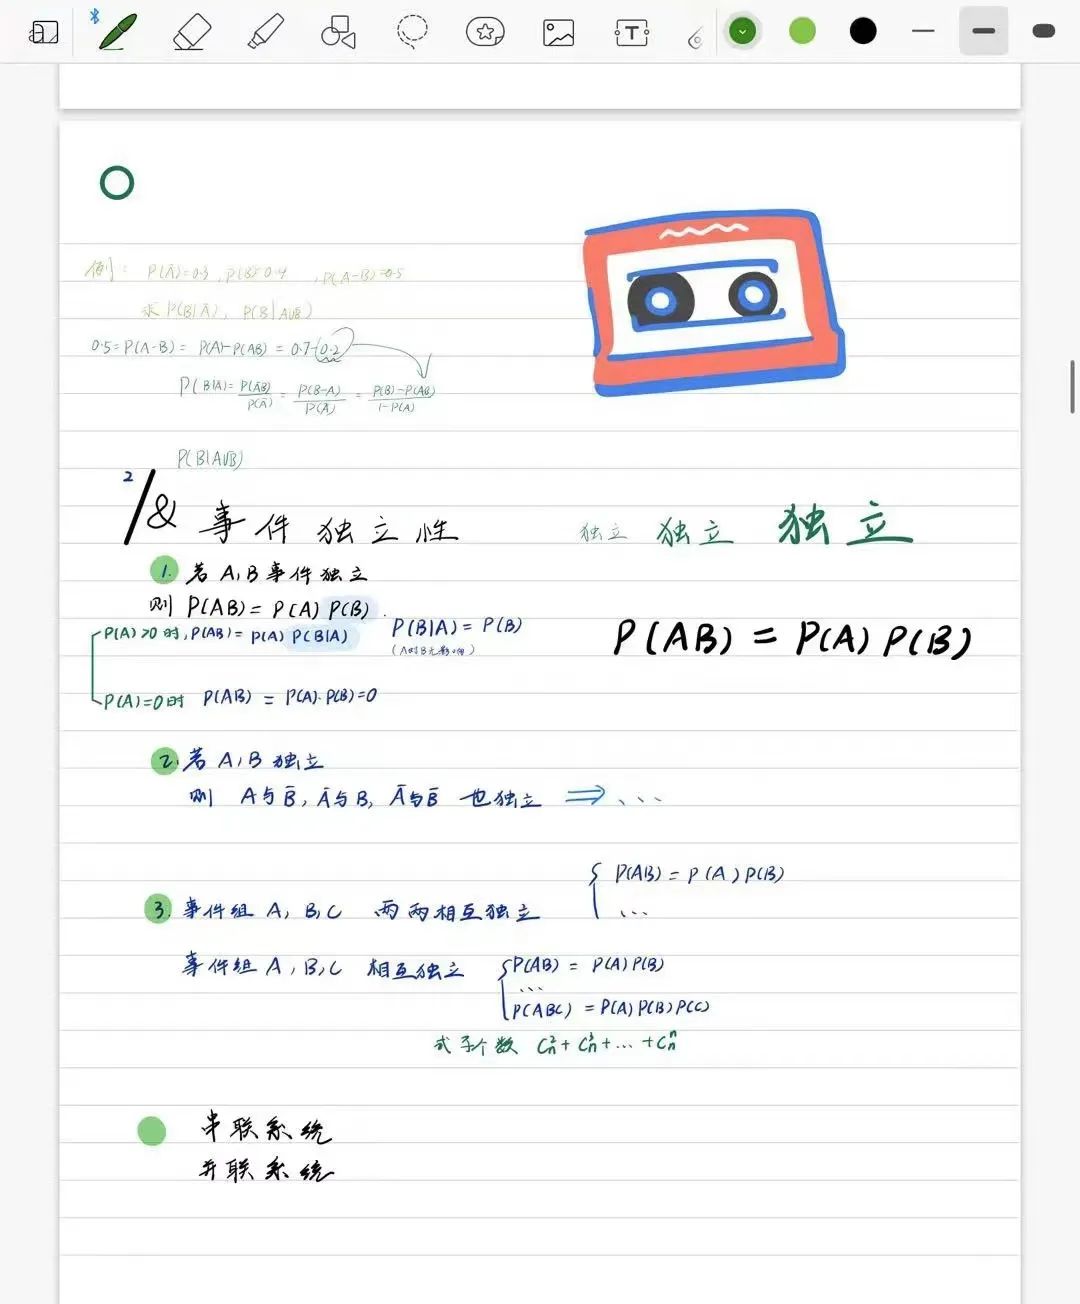 例: P(Ā)=0.3, P(B)=0.4, P(A-B)=0.5
求 P(B|Ā), P(B|A∪B̄)
0.5=P(A-B)= P(A)-P(AB) = 0.7-0.2
P(B|Ā)= P(ĀB)/P(Ā) = P(B-A)/P(Ā) = P(B)-P(AB)/1-P(A)
P(B|A∪B̄)
2
/& 事件独立性 独立 独立 独立
1. 若 A,B事件独立
则 P(AB)= P(A) P(B).
P(A)>0 时, P(AB)= P(A) P(B|A) P(B|A)= P(B)
(A对B无影响)
P(AB) = P(A) P(B)
P(A)=0时 P(AB) = P(A)·P(B)=0
2. 若 A,B 独立
则 A与B̄, Ā与B, Ā与B̄ 也独立 ⇒ ...
3. 事件组 A, B,C 两两相互独立 { P(AB) = P(A) P(B)
...
事件组 A, B,C 相互独立 { P(AB) = P(A) P(B)
...
P(ABC) = P(A) P(B) P(C)
式子个数 Cₙ²+ Cₙ³+ ... +Cₙⁿ
串联系统
并联系统
T